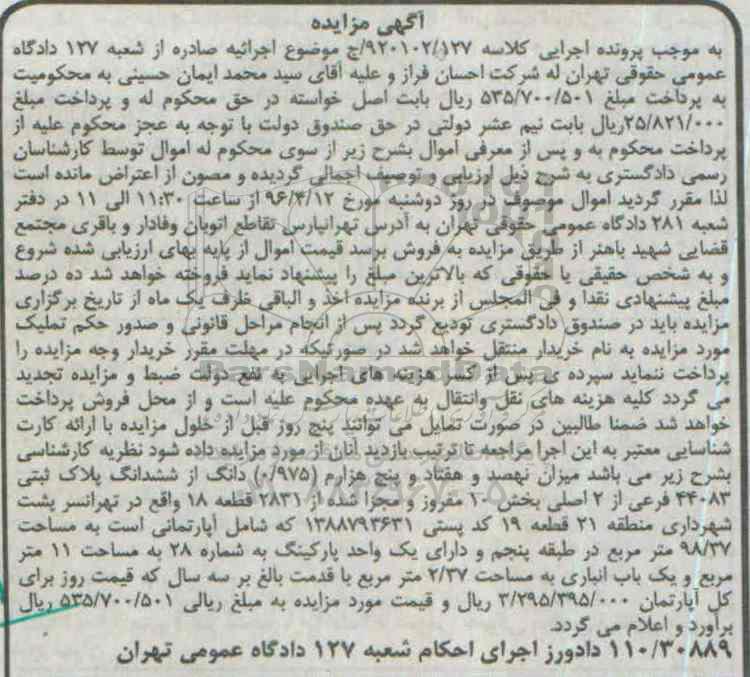 آگهی مزایده
به موجب پرونده اجرایی کلاسه ۹۲۰۱۰۲/۱۲۷/ج موضوع اجرائیه صادره از شعبه ۱۲۷ دادگاه
عمومی حقوقی تهران له شرکت احسان فراز و علیه آقای سید محمد ایمان حسینی به محکومیت
به پرداخت مبلغ ۵۳۵/۷۰۰/۵۰۱ ریال بابت اصل خواسته در حق محکوم له و پرداخت مبلغ
۲۵/۸۲۱/۰۰۰ریال بابت نیم عشر دولتی در حق صندوق دولت با توجه به عجز محکوم علیه از
پرداخت محکوم به و پس از معرفی اموال بشرح زیر از سوی محکوم له اموال توسط کارشناسان
رسمی دادگستری به شرح ذیل ارزیابی و توصیف اجمالی گردیده و مصون از اعتراض مانده است
لذا مقرر گردید اموال موصوف در روز دوشنبه مورخ ۹۶/۴/۱۲ از ساعت ۱۱:۳۰ الی ۱۱ در دفتر
شعبه ۲۸۱ دادگاه عمومی حقوقی تهران به آدرس تهرانپارس تقاطع اتوبان وفادار و باقری مجتمع
قضایی شهید باهنر از طریق مزایده به فروش برسد قیمت اموال از پایه بهای ارزیابی شده شروع
و به شخص حقیقی یا حقوقی که بالاترین مبلغ را پیشنهاد نماید فروخته خواهد شد ده درصد
مبلغ پیشنهادی نقدا و فی المجلس از برنده مزایده اخذ و الباقی ظرف یک ماه از تاریخ برگزاری
مزایده باید در صندوق دادگستری تودیع گردد پس از انجام مراحل قانونی و صدور حکم تملیک
مورد مزایده به نام خریدار منتقل خواهد شد در صورتیکه در مهلت مقرر خریدار وجه مزایده را
پرداخت ننماید سپرده ی پس از کسر هزینه های اجرایی به نفع دولت ضبط و مزایده تجدید
می گردد کلیه هزینه های نقل وانتقال به عهده محکوم علیه است و از محل فروش پرداخت
خواهد شد ضمنا طالبین در صورت تمایل می توانند پنج روز قبل از حلول مزایده با ارائه کارت
شناسایی معتبر به این اجرا مراجعه تا ترتیب بازدید آنان از مورد مزایده داده شود نظریه کارشناسی
بشرح زیر می باشد میزان نهصد و هفتاد و پنج هزارم (۰/۹۷۵) دانگ از ششدانگ پلاک ثبتی
۴۴۰۸۳ فرعی از ۲ اصلی بخش ۱۰ مفروز و مجزا شده از ۲۸۳۱ قطعه ۱۸ واقع در تهرانسر پشت
شهرداری منطقه ۲۱ قطعه ۱۹ کد پستی ۱۳۸۸۷۹۳۶۳۱ که شامل آپارتمانی است به مساحت
۹۸/۳۷ متر مربع در طبقه پنجم و دارای یک واحد پارکینگ به شماره ۲۸ به مساحت ۱۱ متر
مربع و یک باب انباری به مساحت ۲/۳۷ متر مربع با قدمت بالغ بر سه سال که قیمت روز برای
کل آپارتمان ۳/۲۹۵/۳۹۵/۰۰۰ ریال و قیمت مورد مزایده به مبلغ ریالی ۵۳۵/۷۰۰/۵۰۱ ریال
برآورد و اعلام می گردد.
۱۱۰/۳۰۸۸۹ دادورز اجرای احکام شعبه ۱۲۷ دادگاه عمومی تهران
ParsNamadData